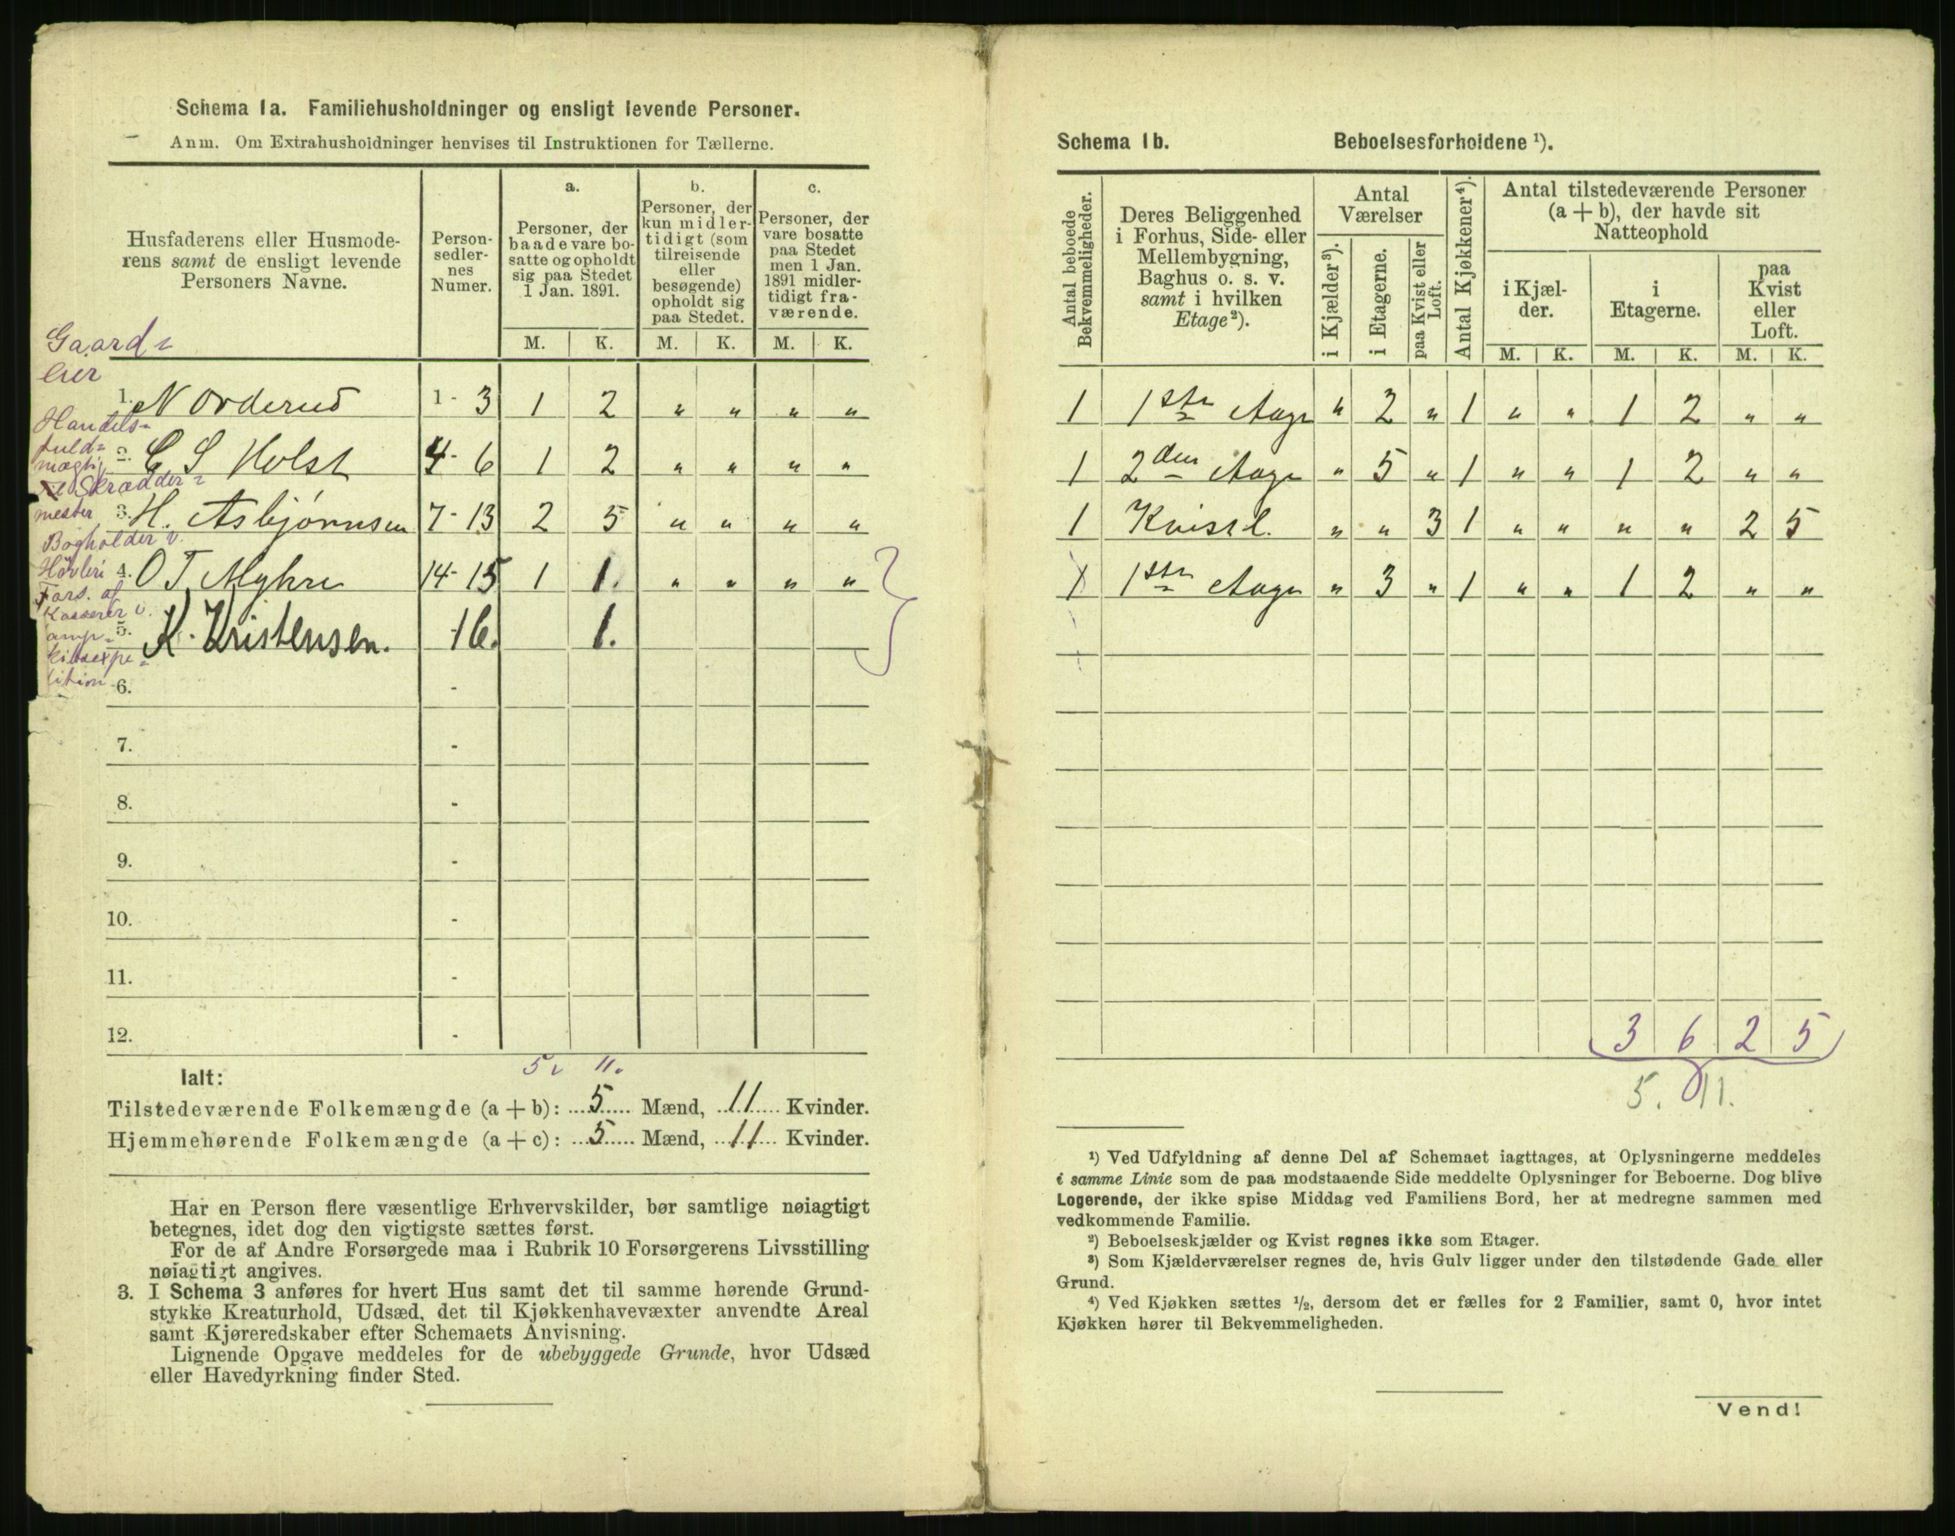 Schema 1a. Familiehusholdninger og ensligt levende Personer.
Anm. Om Extrahusholdninger henvises til Instruktionen for Tællerne.
Husfaderens eller Husmode-
rens samt de ensligt levende
Personers Navne.
Person-
sedler-
nes
Numer.
a.
Personer, der
baade vare bo-
satte og opholdt
sig paa Stedet
1 Jan. 1891.
b.
Personer, der
kun midler-
tidigt (som
tilreisende
eller
besøgende)
opholdt sig
paa Stedet.
c.
Personer, der
vare bosatte
paa Stedet
men 1 Jan.
1891 midler-
tidigt fra-
værende.
M. K. M. K. M. K.
Gaard-
eier
1. N Orderud 1 - 3 1 2 " " " "
Handels-
fuld-
mægtig
2. C S Holst 4 - 6 1 2 " " " "
Skrædder-
mester
3. H. Asbjørnsen 7 - 13 2 5 " " " "
Bogholder v.
Høvleri
4. O T Myhre 14 - 15 1 1. " " " "
Fors. af
Kasserer v.
5. K. Kristensen. 16. 1.
6. -
7. -
8. -
9. -
10. -
11. -
12. -
5. 11.
Ialt:
Tilstedeværende Folkemængde (a + b): 5 Mænd, 11 Kvinder.
Hjemmehørende Folkemængde (a + c): 5 Mænd, 11 Kvinder.
Har en Person flere væsentlige Erhvervskilder, bør samtlige nøiagtigt
betegnes, idet dog den vigtigste sættes først.
For de af Andre Forsørgede maa i Rubrik 10 Forsørgerens Livsstilling
nøiagtigt angives.
3. I Schema 3 anføres for hvert Hus samt det til samme hørende Grund-
stykke Kreaturhold, Udsæd, det til Kjøkkenhavevæxter anvendte Areal
samt Kjøreredskaber efter Schemaets Anvisning.
Lignende Opgave meddeles for de ubebyggede Grunde, hvor Udsæd
eller Havedyrkning finder Sted.
Schema 1b. Beboelsesforholdene ¹).
Antal beboede
Bekvemmeligheder.
Deres Beliggenhed
i Forhus, Side- eller
Mellembygning,
Baghus o. s. v.
samt i hvilken
Etage²).
Antal
Værelser
i Kjælder³).
i Etagerne.
paa Kvist eller
Loft.
Antal Kjøkkener⁴).
Antal tilstedeværende Personer
(a + b), der havde sit
Natteophold
i Kjæl-
der.
i
Etagerne.
paa
Kvist
eller
Loft.
M. K. M. K. M. K.
1 1ste Etage " 2 " 1 " " 1 2 " "
1 2den Etage " 5 " 1 " " 1 2 " "
1 Kvist. " " 3 1 " " " " 2 5
1 1ste Etage " 3 " 1 " " 1 2 " "
3 6 2 5
5. 11.
¹) Ved Udfyldning af denne Del af Schemaet iagttages, at Oplysningerne meddeles
i samme Linie som de paa modstaaende Side meddelte Oplysninger for Beboerne. Dog blive
Logerende, der ikke spise Middag ved Familiens Bord, her at medregne sammen med
vedkommende Familie.
²) Beboelseskjælder og Kvist regnes ikke som Etager.
³) Som Kjælderværelser regnes de, hvis Gulv ligger under den tilstødende Gade eller
Grund.
⁴) Ved Kjøkken sættes ½, dersom det er fælles for 2 Familier, samt 0, hvor intet
Kjøkken hører til Bekvemmeligheden.
Vend!